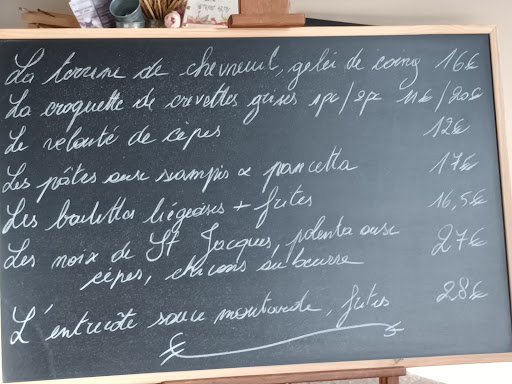 La terrine de chevreuil, gelée de coing 16€
La croquette de crevettes grises 1pc/2pc 11€/20€
Le velouté de cèpes 12€
Les pâtes aux scampis & pancetta 17€
Les boulettes liégeoises + frites 16,5€
Les noix de St Jacques, polenta aux 27€
cèpes, chicons au beurre
L'entrecôte sauce moutarde, frites 28€